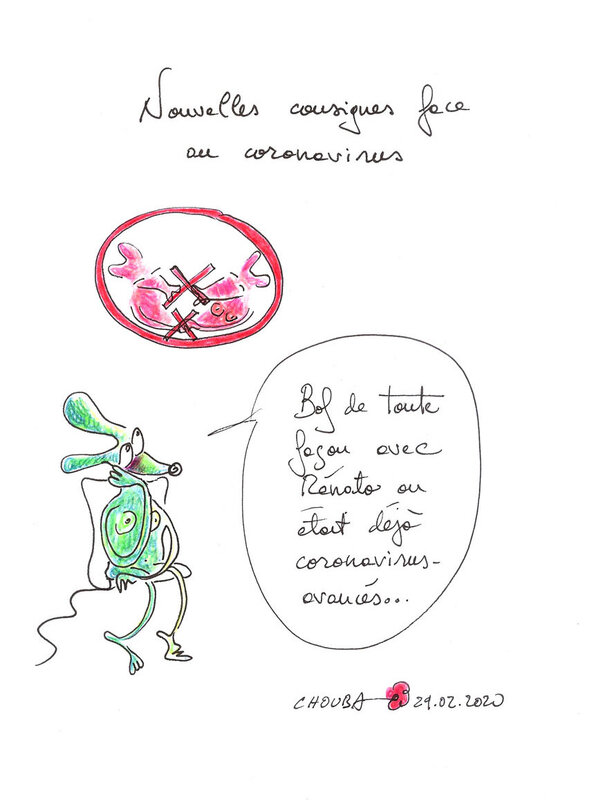 Nouvelles consignes face
au coronavirus
Bof de toute
façon avec
Rénato on
était déjà
coronavirus-
avancés...
CHOUBA 29.02.2020